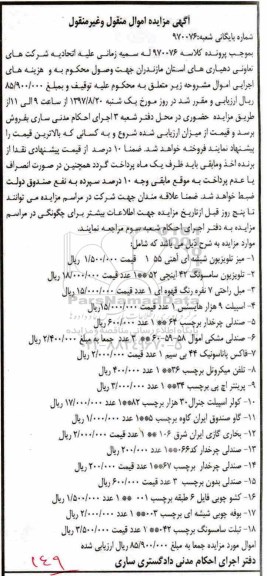 آگهی مزایده اموال منقول وغیرمنقول
شماره بایگانی شعبه: ۹۷۰۰۷۶
بموجب پرونده کلاسه ۹۷۰۰۷۶ له سمیه زمانی علیه اتحادیه شرکت های
تعاونی دهیاری های استان مازندران جهت وصول محکوم به و هزینه های
اجرایی اموال مشروحه زیر متعلق به محکوم علیه توقیف و بمبلغ ۸۵/۹۰۰/۰۰۰
ریال ارزیابی و مقرر شد در روز مورخ یک شنبه ۱۳۹۷/۸/۲۰ از ساعت ۹ الی ۱۱از
طریق مزایده حضوری در محل دفتر شعبه ۳ اجرای احکام مدنی ساری بفروش
برسد و قیمت از میزان ارزیابی شده شروع و به کسانی که بالاترین قیمت را
پیشنهاد نمایند فروخته خواهد شد. ضمنا ۱۰ درصد از قیمت پیشنهادی نقدا از
برنده اخذ ومابقی باید ظرف یک ماه پرداخت گردد همچنین در صورت انصراف
یا عدم پرداخت به موقع مابقی وجه ۱۰ درصد سپرده به نفع صندوق دولت
ضبط خواهد شد. ضمنا علاقه مندان جهت شرکت در مراسم مزایده می توانند
تا پنج روز قبل ازتاریخ مزایده جهت اطلاعات بیشتر برای چگونگی در مراسم
مزایده به دفتر اجرای احکام شعبه سوم مراجعه نمایند.
موارد مزایده به شرح ذیل می باشد که شامل:
۱- میز تلویزیون شیشه ای آهنی ۵۵ ۱ قیمت ۱/۵۰۰/۰۰۰ ریال
۲- تلویزیون سامسونگ ۴۲ اینچی ۵۲**۱ عدد قیمت ۱۸/۰۰۰/۰۰۰ ریال
۳- مبل راحتی ۷ نفره رنگ قهوه ای ۱ عدد قیمت ۱۵/۰۰۰/۰۰۰ ریال
۴- اسپیلت ۹ هزار هایسنس ۱ عدد قیمت ۱۵/۰۰۰/۰۰۰ریال
۵- صندلی چرخدار برچسب ۶۴**۱ عدد ۶۰۰/۰۰۰ ریال
۶- صندلی مشکی اموال ۵۸-۵۹-۶۰** ۳ عدد جمعا به مبلغ ۲/۴۰۰/۰۰۰ ریال
۷-فاکس پاناسونیک ۴۴ بی سیم ۱ عدد قیمت ۲/۰۰۰/۰۰۰ ریال
۸- تلفن میکروتل برچسب ۳۶**۱ عدد ۴۰۰/۰۰۰ ریال
۹- پرینتر اچ پی برچسب ۳۴**۱ عدد ۳/۰۰۰/۰۰۰ ریال
۱۰- کولر اسپیلت جنرال۳۰ هزار برچسب ۸۲**۱ عدد ۱۷/۰۰۰/۰۰۰ ریال
۱۱- گاو صندوق ایران کاوه برچسب ۵**۱ عدد ۱/۰۰۰/۰۰۰ ریال
۱۲- بخاری گازی ایران شرق ۱۰۶ ** ۱ عدد قیمت ۲/۰۰۰/۰۰۰ ریال
۱۳- صندلی چرخدار کد۶۶**۱ عدد ۲۰۰/۰۰۰ ریال
۱۴- صندلی چرخدار برچسب ۶۷**۱عدد قیمت ۲۰۰/۰۰۰ ریال
۱۵- صندلی بدون برچسب ۳ عدد قیمت ۶۰۰/۰۰۰ ریال
۱۶- کشو چوبی فایل ۶ طبقه برچسب ۰۰۱ ** ۱ عدد قیمت ۱/۵۰۰/۰۰۰ ریال
۱۷- بوفه چوبی شیشه ای برچسب ۰۳**۱ عدد قیمت ۲/۰۰۰/۰۰۰ ریال
۱۸- تبلت سامسونگ برچسب ۰۴۲**۱ عدد قیمت ۳/۵۰۰/۰۰۰ ریال
اموال مورد مزایده جمعا به مبلغ ۸۵/۹۰۰/۰۰۰ ریال ارزیابی شده
دفتر اجرای احکام مدنی دادگستری ساری
۱۴۹